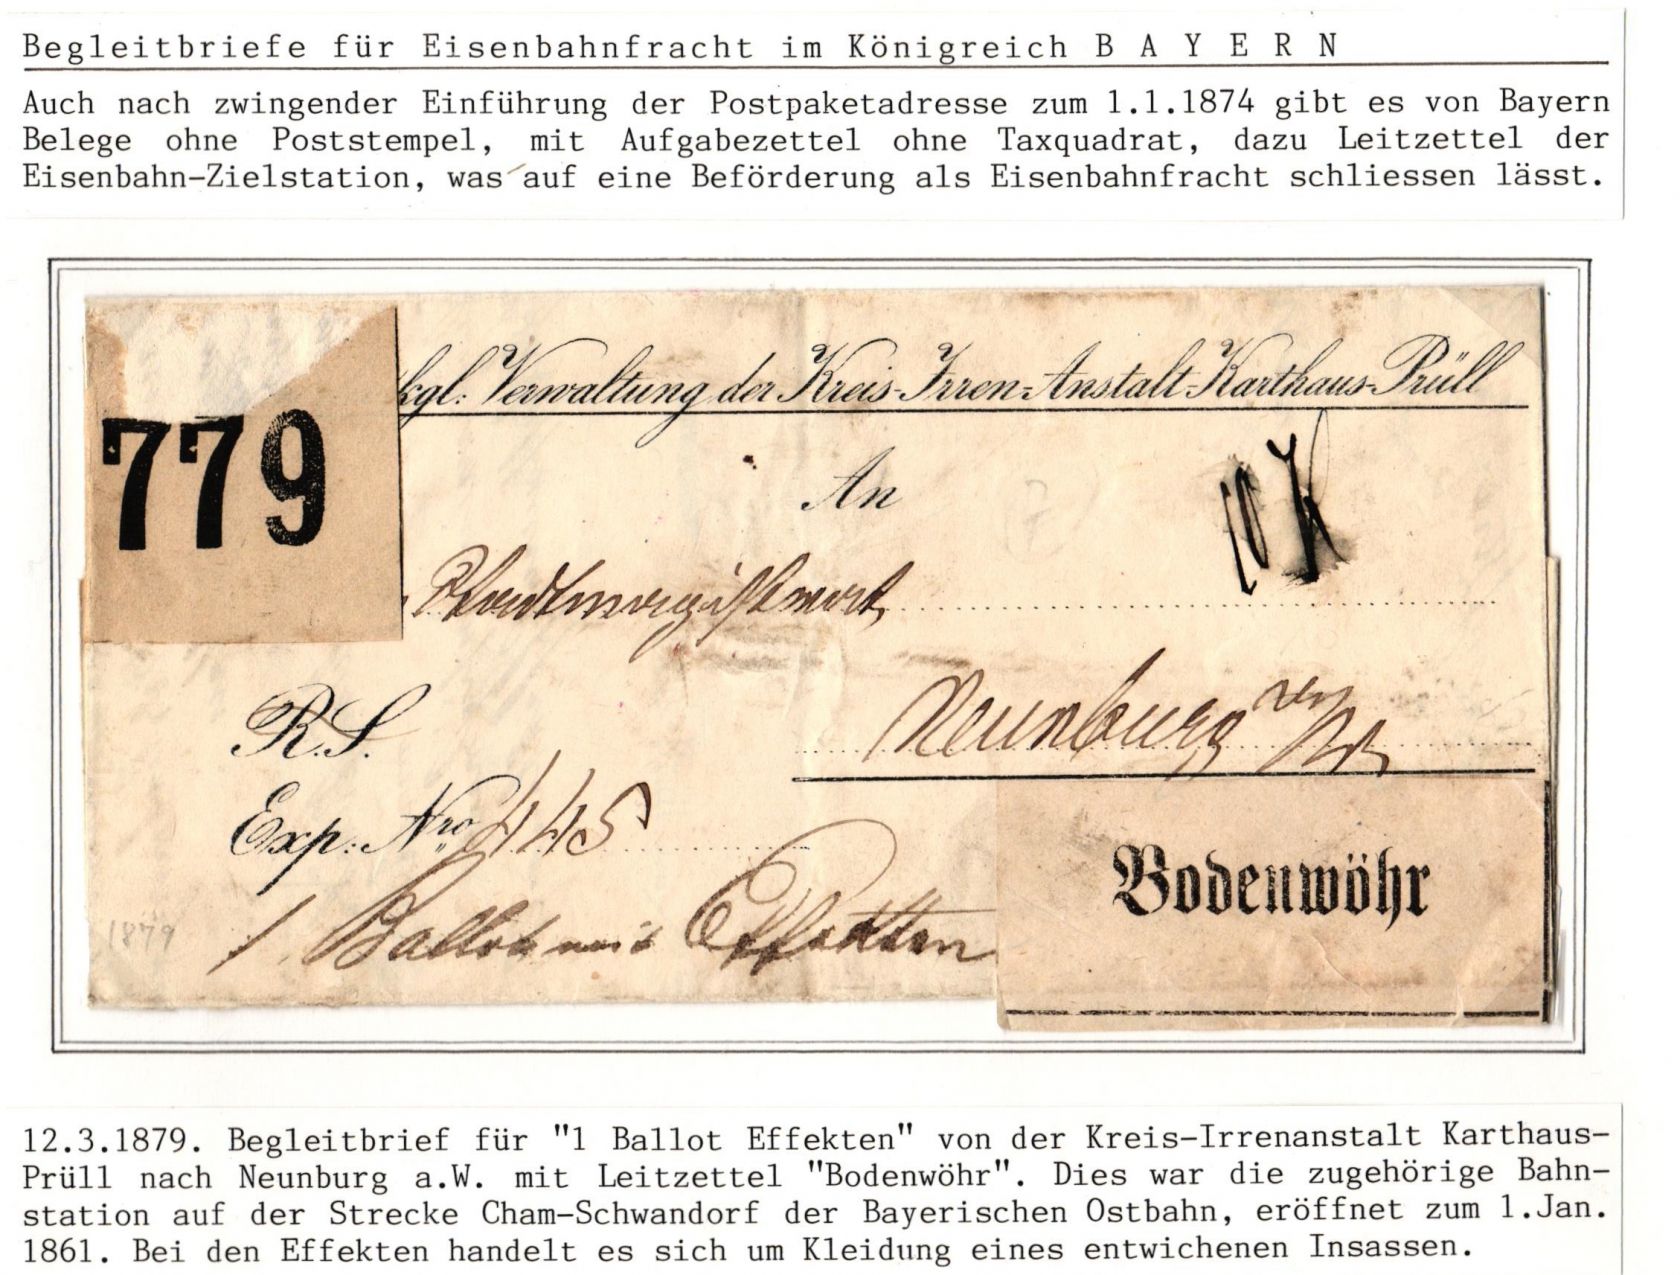 Begleitbriefe für Eisenbahnfracht im Königreich B A Y E R N
Auch nach zwingender Einführung der Postpaketadresse zum 1.1.1874 gibt es von Bayern
Belege ohne Poststempel, mit Aufgabezettel ohne Taxquadrat, dazu Leitzettel der
Eisenbahn-Zielstation, was auf eine Beförderung als Eisenbahnfracht schliessen lässt.
kgl: Verwaltung der Kreis-Irren-Anstalt-Karthaus-Prüll
779
An
Stadtmagistrat
Neunburg
R.S.
Exp: Nro 445
Bodenwöhr
1879
1 Ballot mit Effekten
12.3.1879. Begleitbrief für "1 Ballot Effekten" von der Kreis-Irrenanstalt Karthaus-
Prüll nach Neunburg a.W. mit Leitzettel "Bodenwöhr". Dies war die zugehörige Bahn-
station auf der Strecke Cham-Schwandorf der Bayerischen Ostbahn, eröffnet zum 1.Jan.
1861. Bei den Effekten handelt es sich um Kleidung eines entwichenen Insassen.